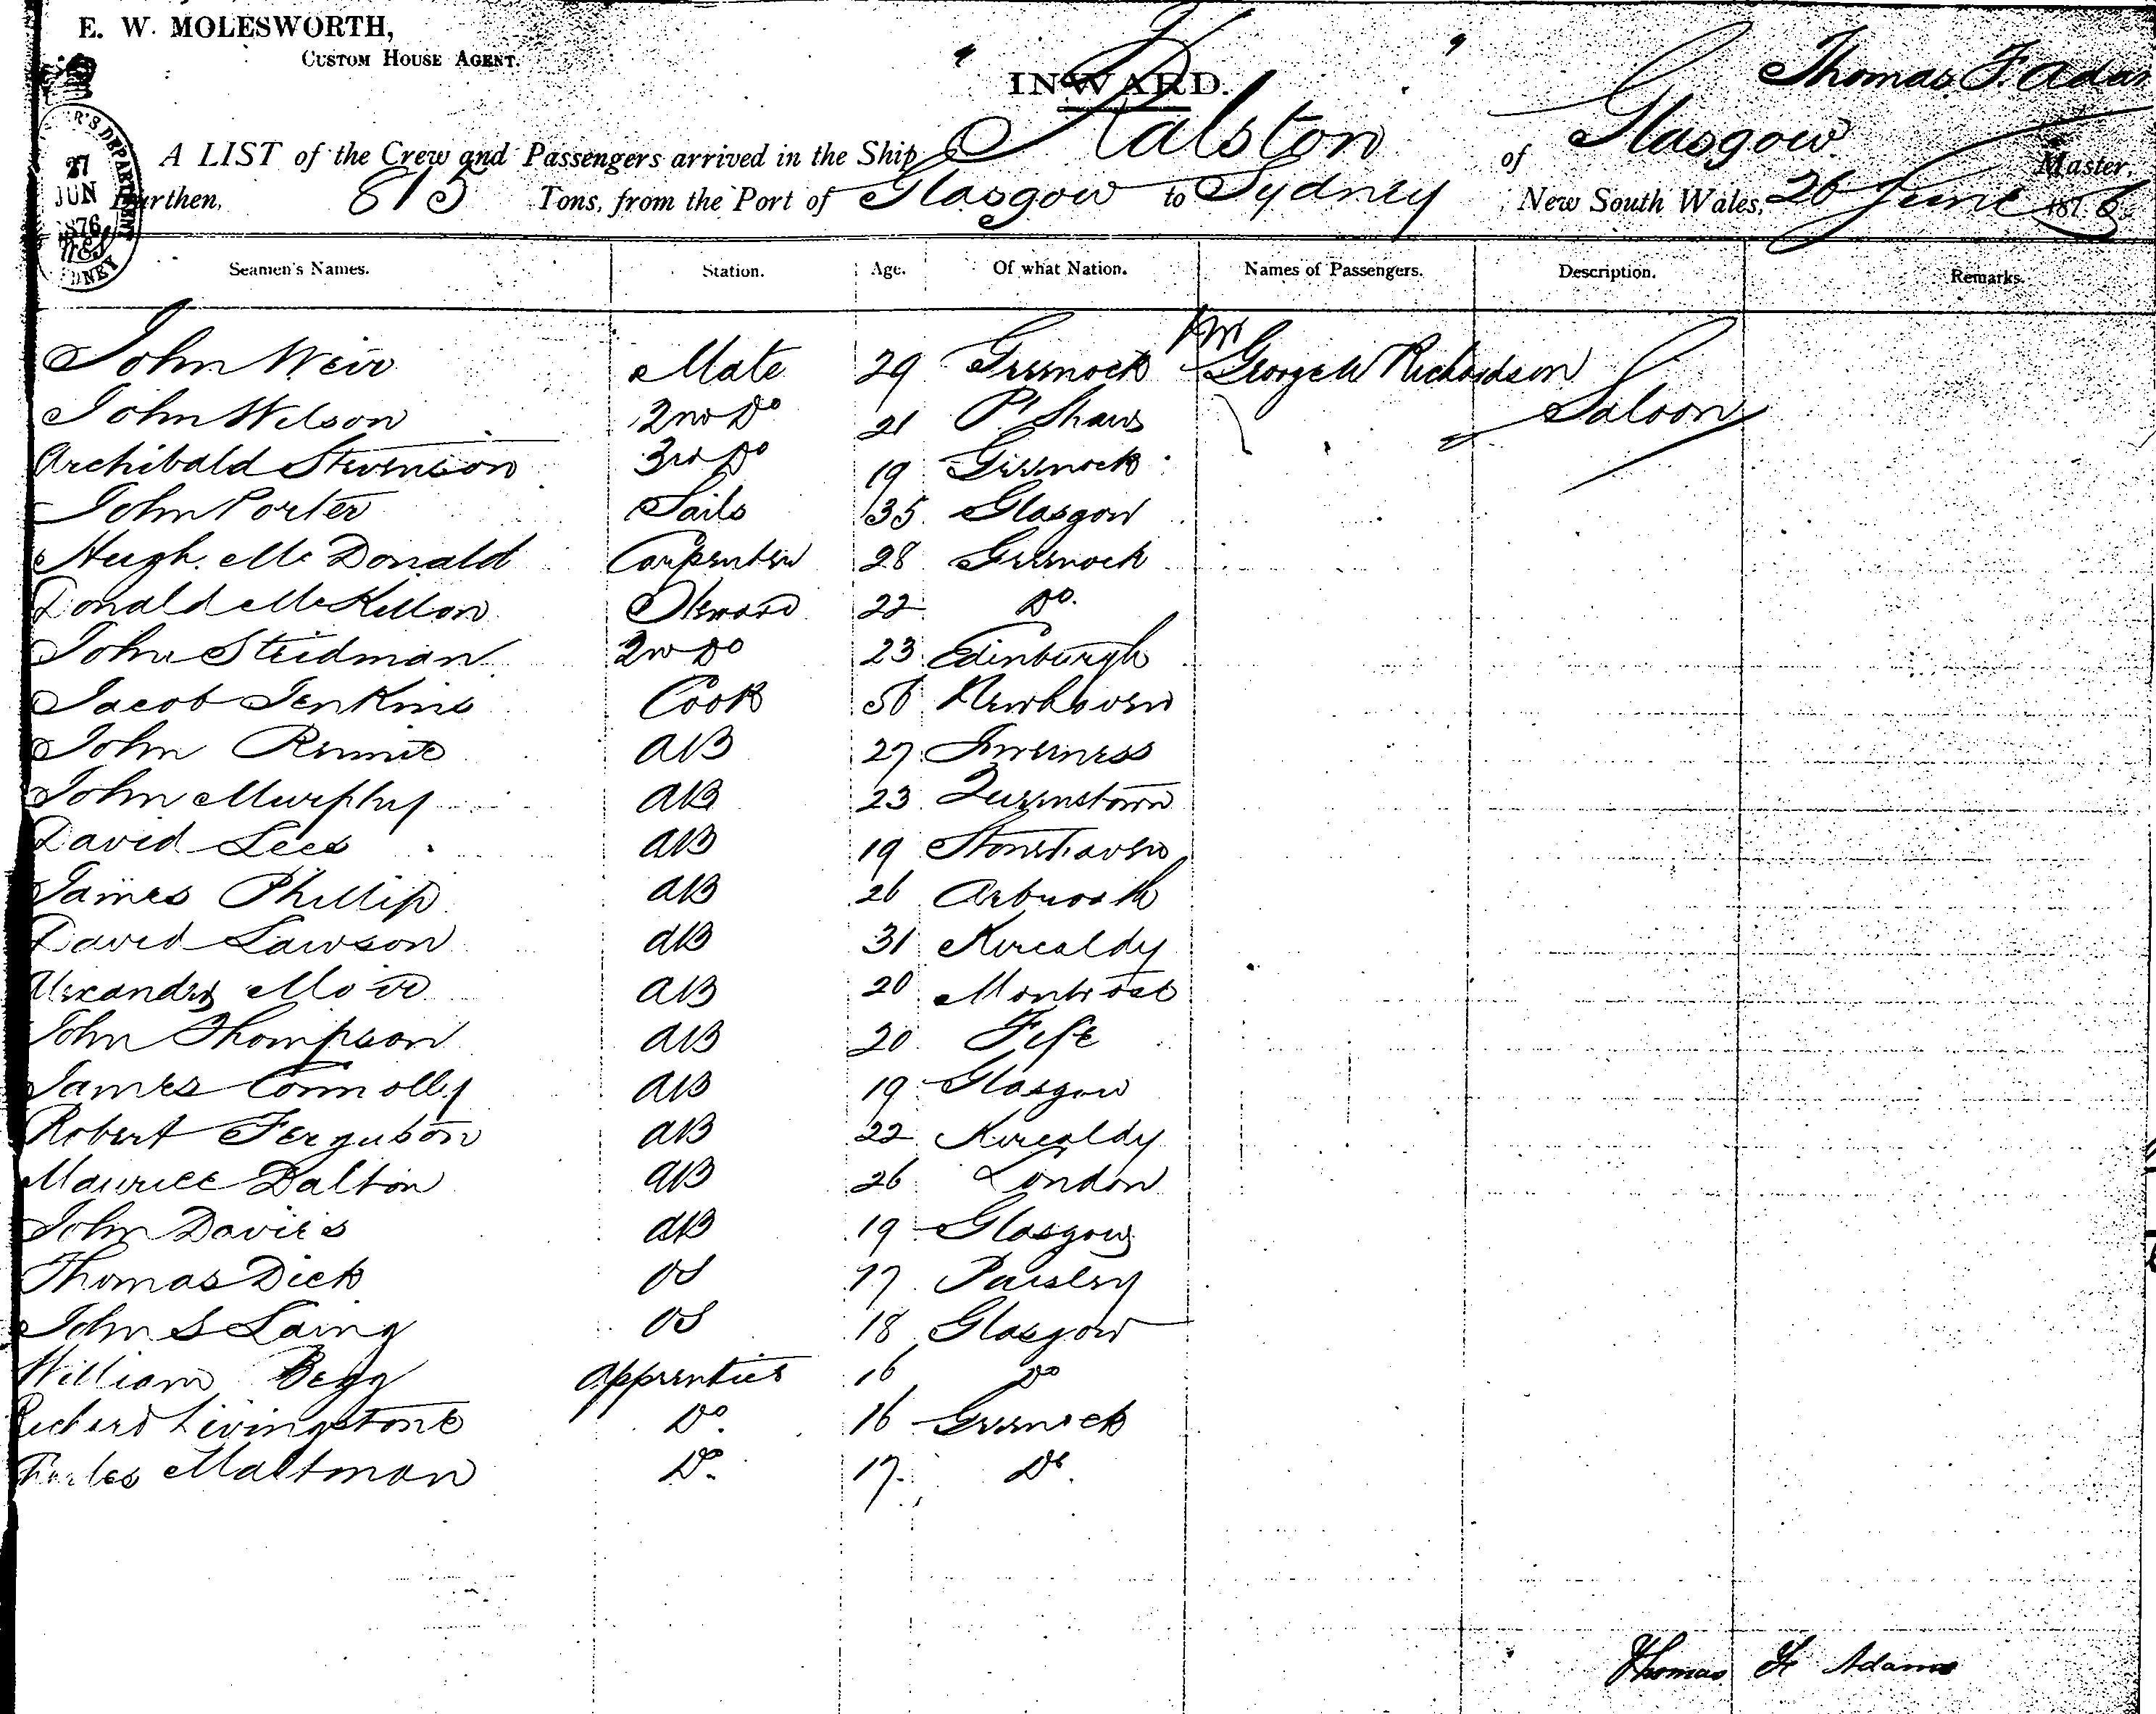 E. W. MOLESWORTH,
CUSTOM HOUSE AGENT.
INWARD.
Thomas. F. Adams
A LIST of the Crew and Passengers arrived in the Ship "Ralston" of Glasgow Master,
Burthen, 815 Tons, from the Port of Glasgow to Sydney New South Wales, 26 June 1876
27 JUN 1876
Seamen's Names. Station. Age. Of what Nation. Names of Passengers. Description. Remarks.
John Weir Mate 29 Greenock Mr George W Richardson
John Wilson 2nd Do 21 Pt Shaws Saloon
Archibald Stevenson 3rd Do 19 Greenock
John Porter Sails 35 Glasgow
Hugh. McDonald Carpenter 28 Greenock
Donald McKellon Steward 22 Do.
John Steidman 2nd Do 23 Edinburgh
Jacob Jenkins Cook 56 Newhaven
John Rennie AB 27 Inverness
John Murphy AB 23 Queenstown
David Lees AB 19 Stonehaven
James Phillip AB 26 Arbroath
David Lawson AB 31 Kircaldy
Alexander Moir AB 20 Montrose
John Thompson AB 20 Fife
James Connolly AB 19 Glasgow
Robert Ferguson AB 22 Kircaldy
Maurice Dalton AB 26 London
John Davies AB 19 Glasgow
Thomas Dick OS 17 Paisley
John S Laing OS 18 Glasgow
William Begg Apprentice 16 Do
Richard Livingstone Do. 16 Greenock
Charles Maltman Do. 17 Do.
Thomas F Adams